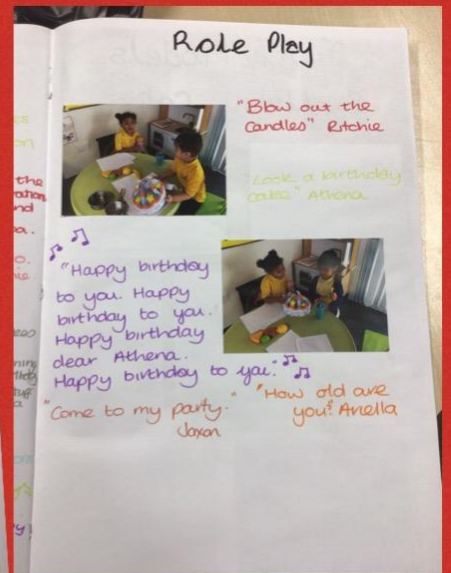 Role Play
"Blow out the
candles" Ritchie
"Look a birthday
cake" Athena
"Happy birthday
to you. Happy
birthday to you.
Happy birthday
dear Athena.
Happy birthday to you."
"Come to my party."
Jaxon
"How old are
you? Ariella
the